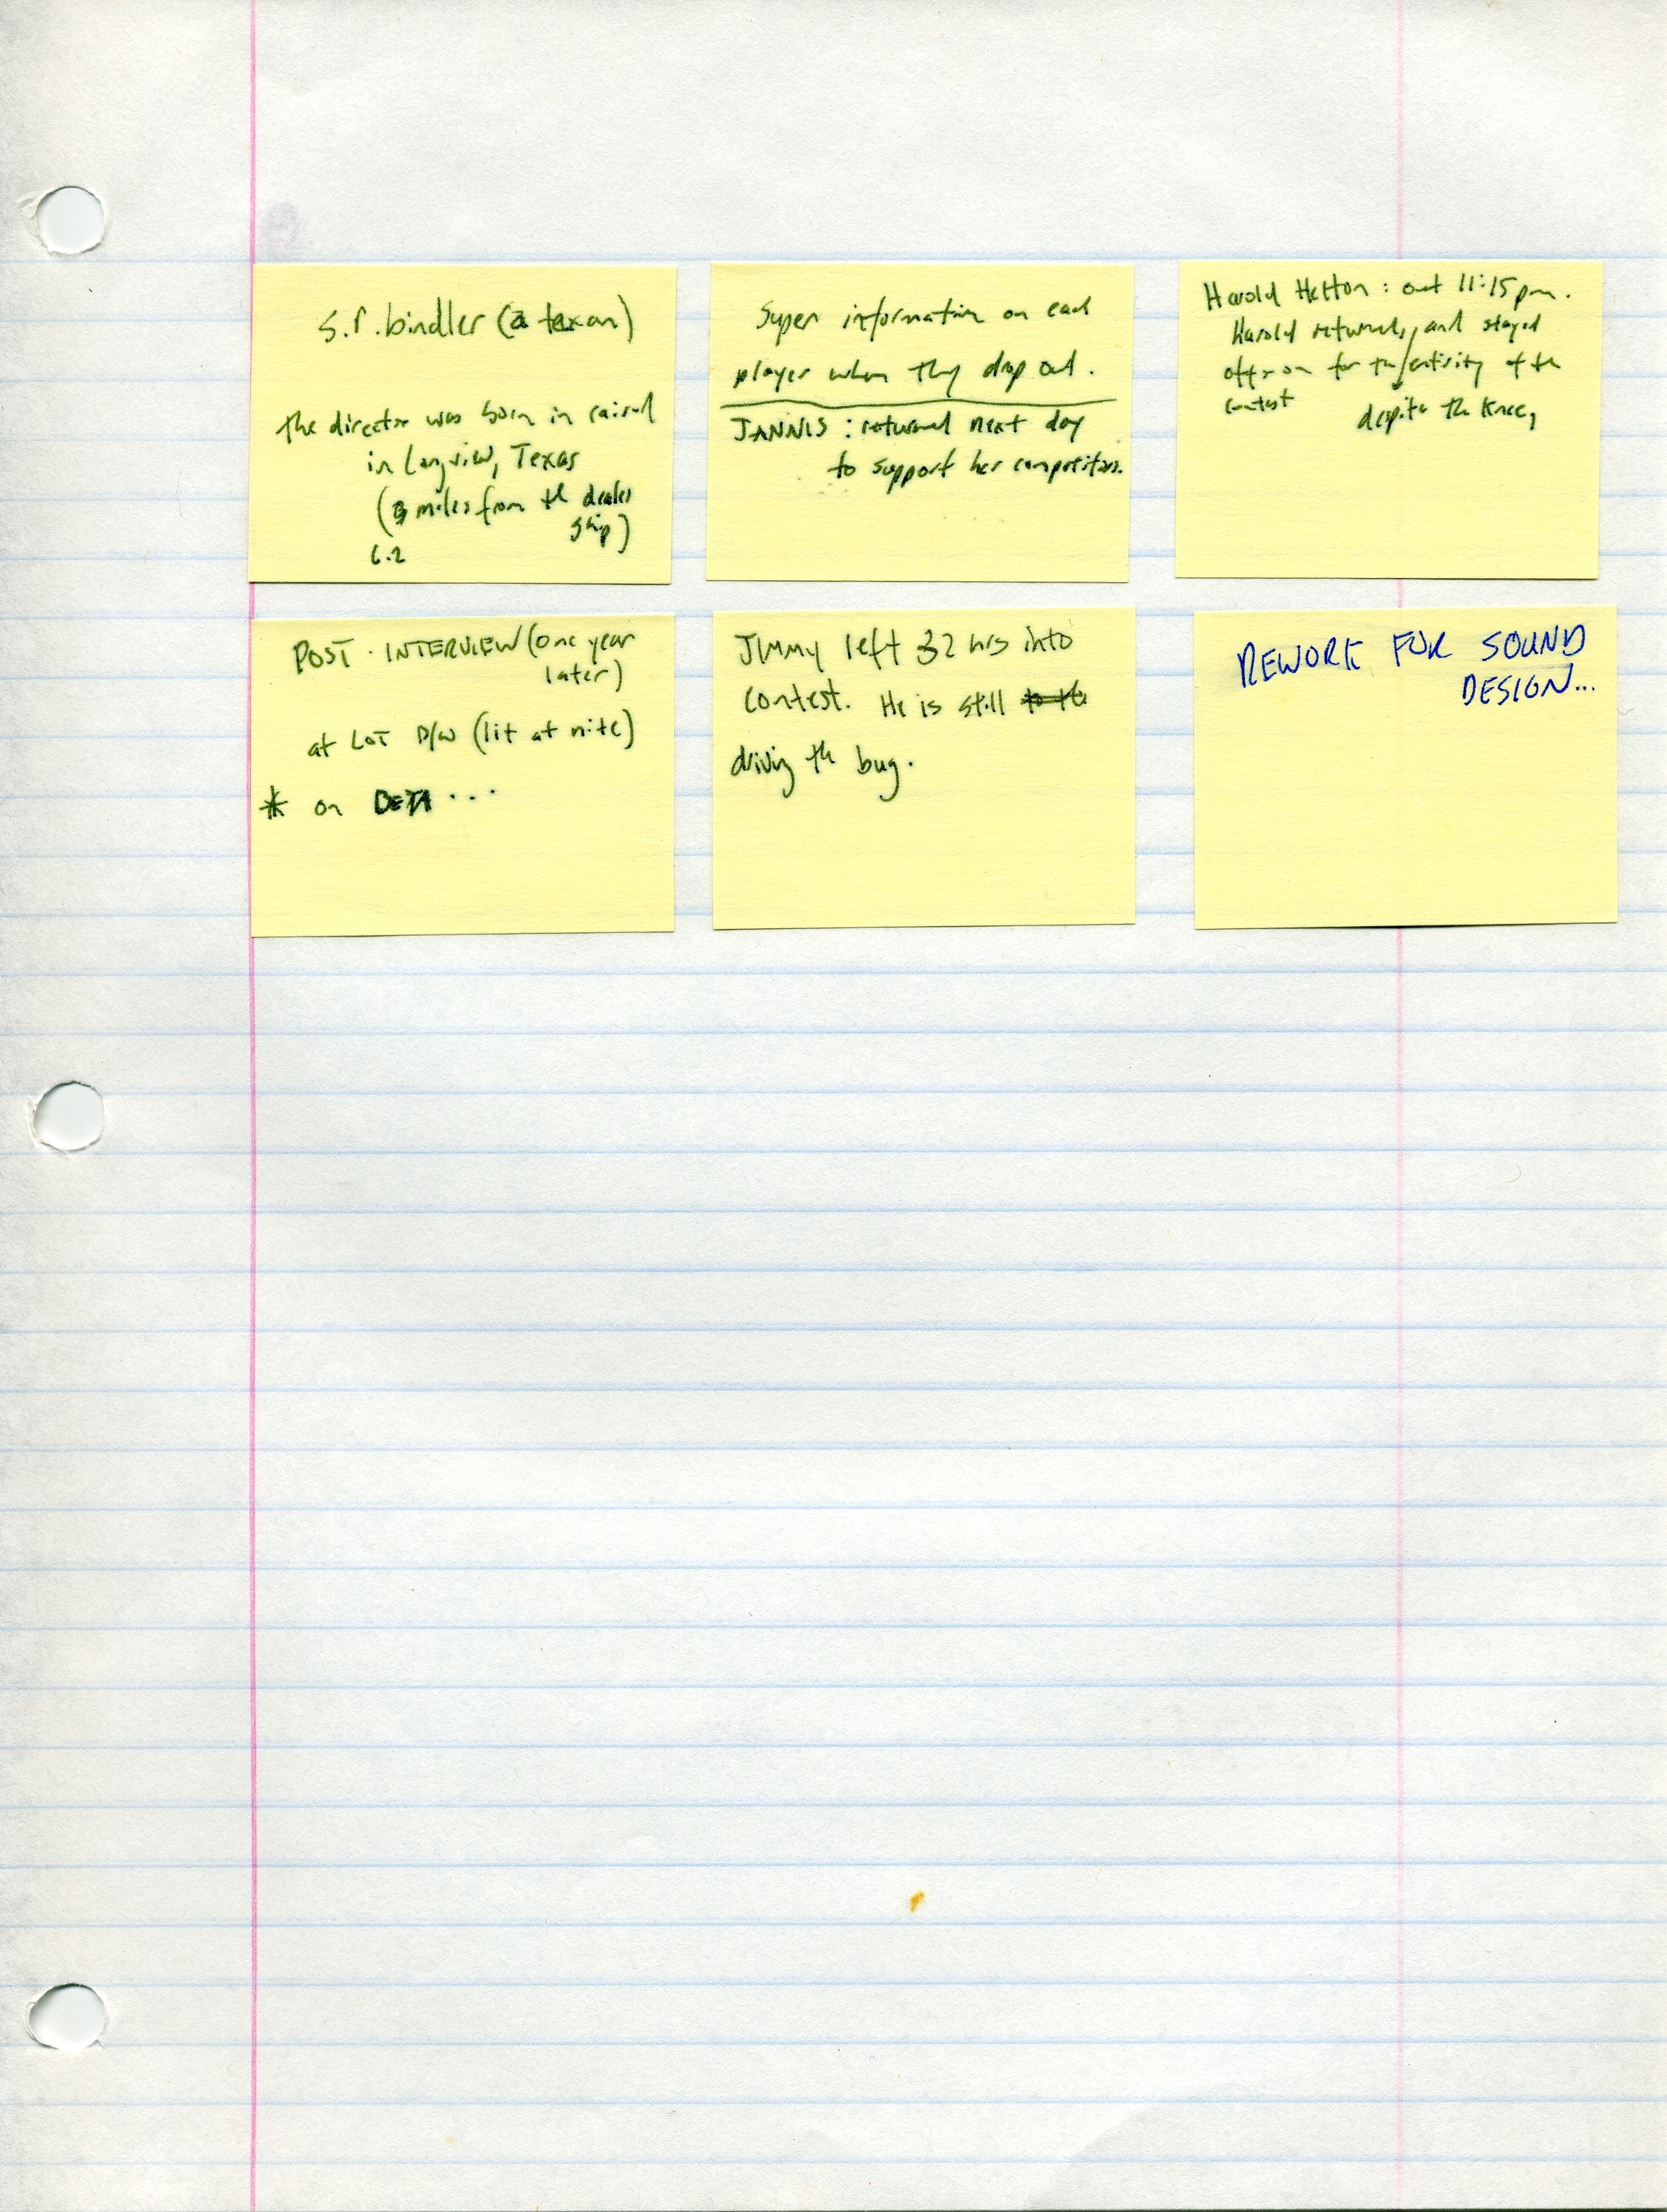 S.r.bindler (a texan)
the director was born in raised
in Longview, Texas
(3 miles from the dealer
ship)
6.2
Super information on each
player when they drop out.
JANNIS : returned next day
to support her competitors.
Harold Hetton : out 11:15pm.
Harold returned, and stayed
off + on for the entirity of the
contest despite the knee,
POST - INTERVIEW (one year
later)
at LOT D/W (lit at nite)
* on BETA ...
JIMMY left 32 hrs into
contest. He is still
driving the bug.
REWORK FOR SOUND
DESIGN...